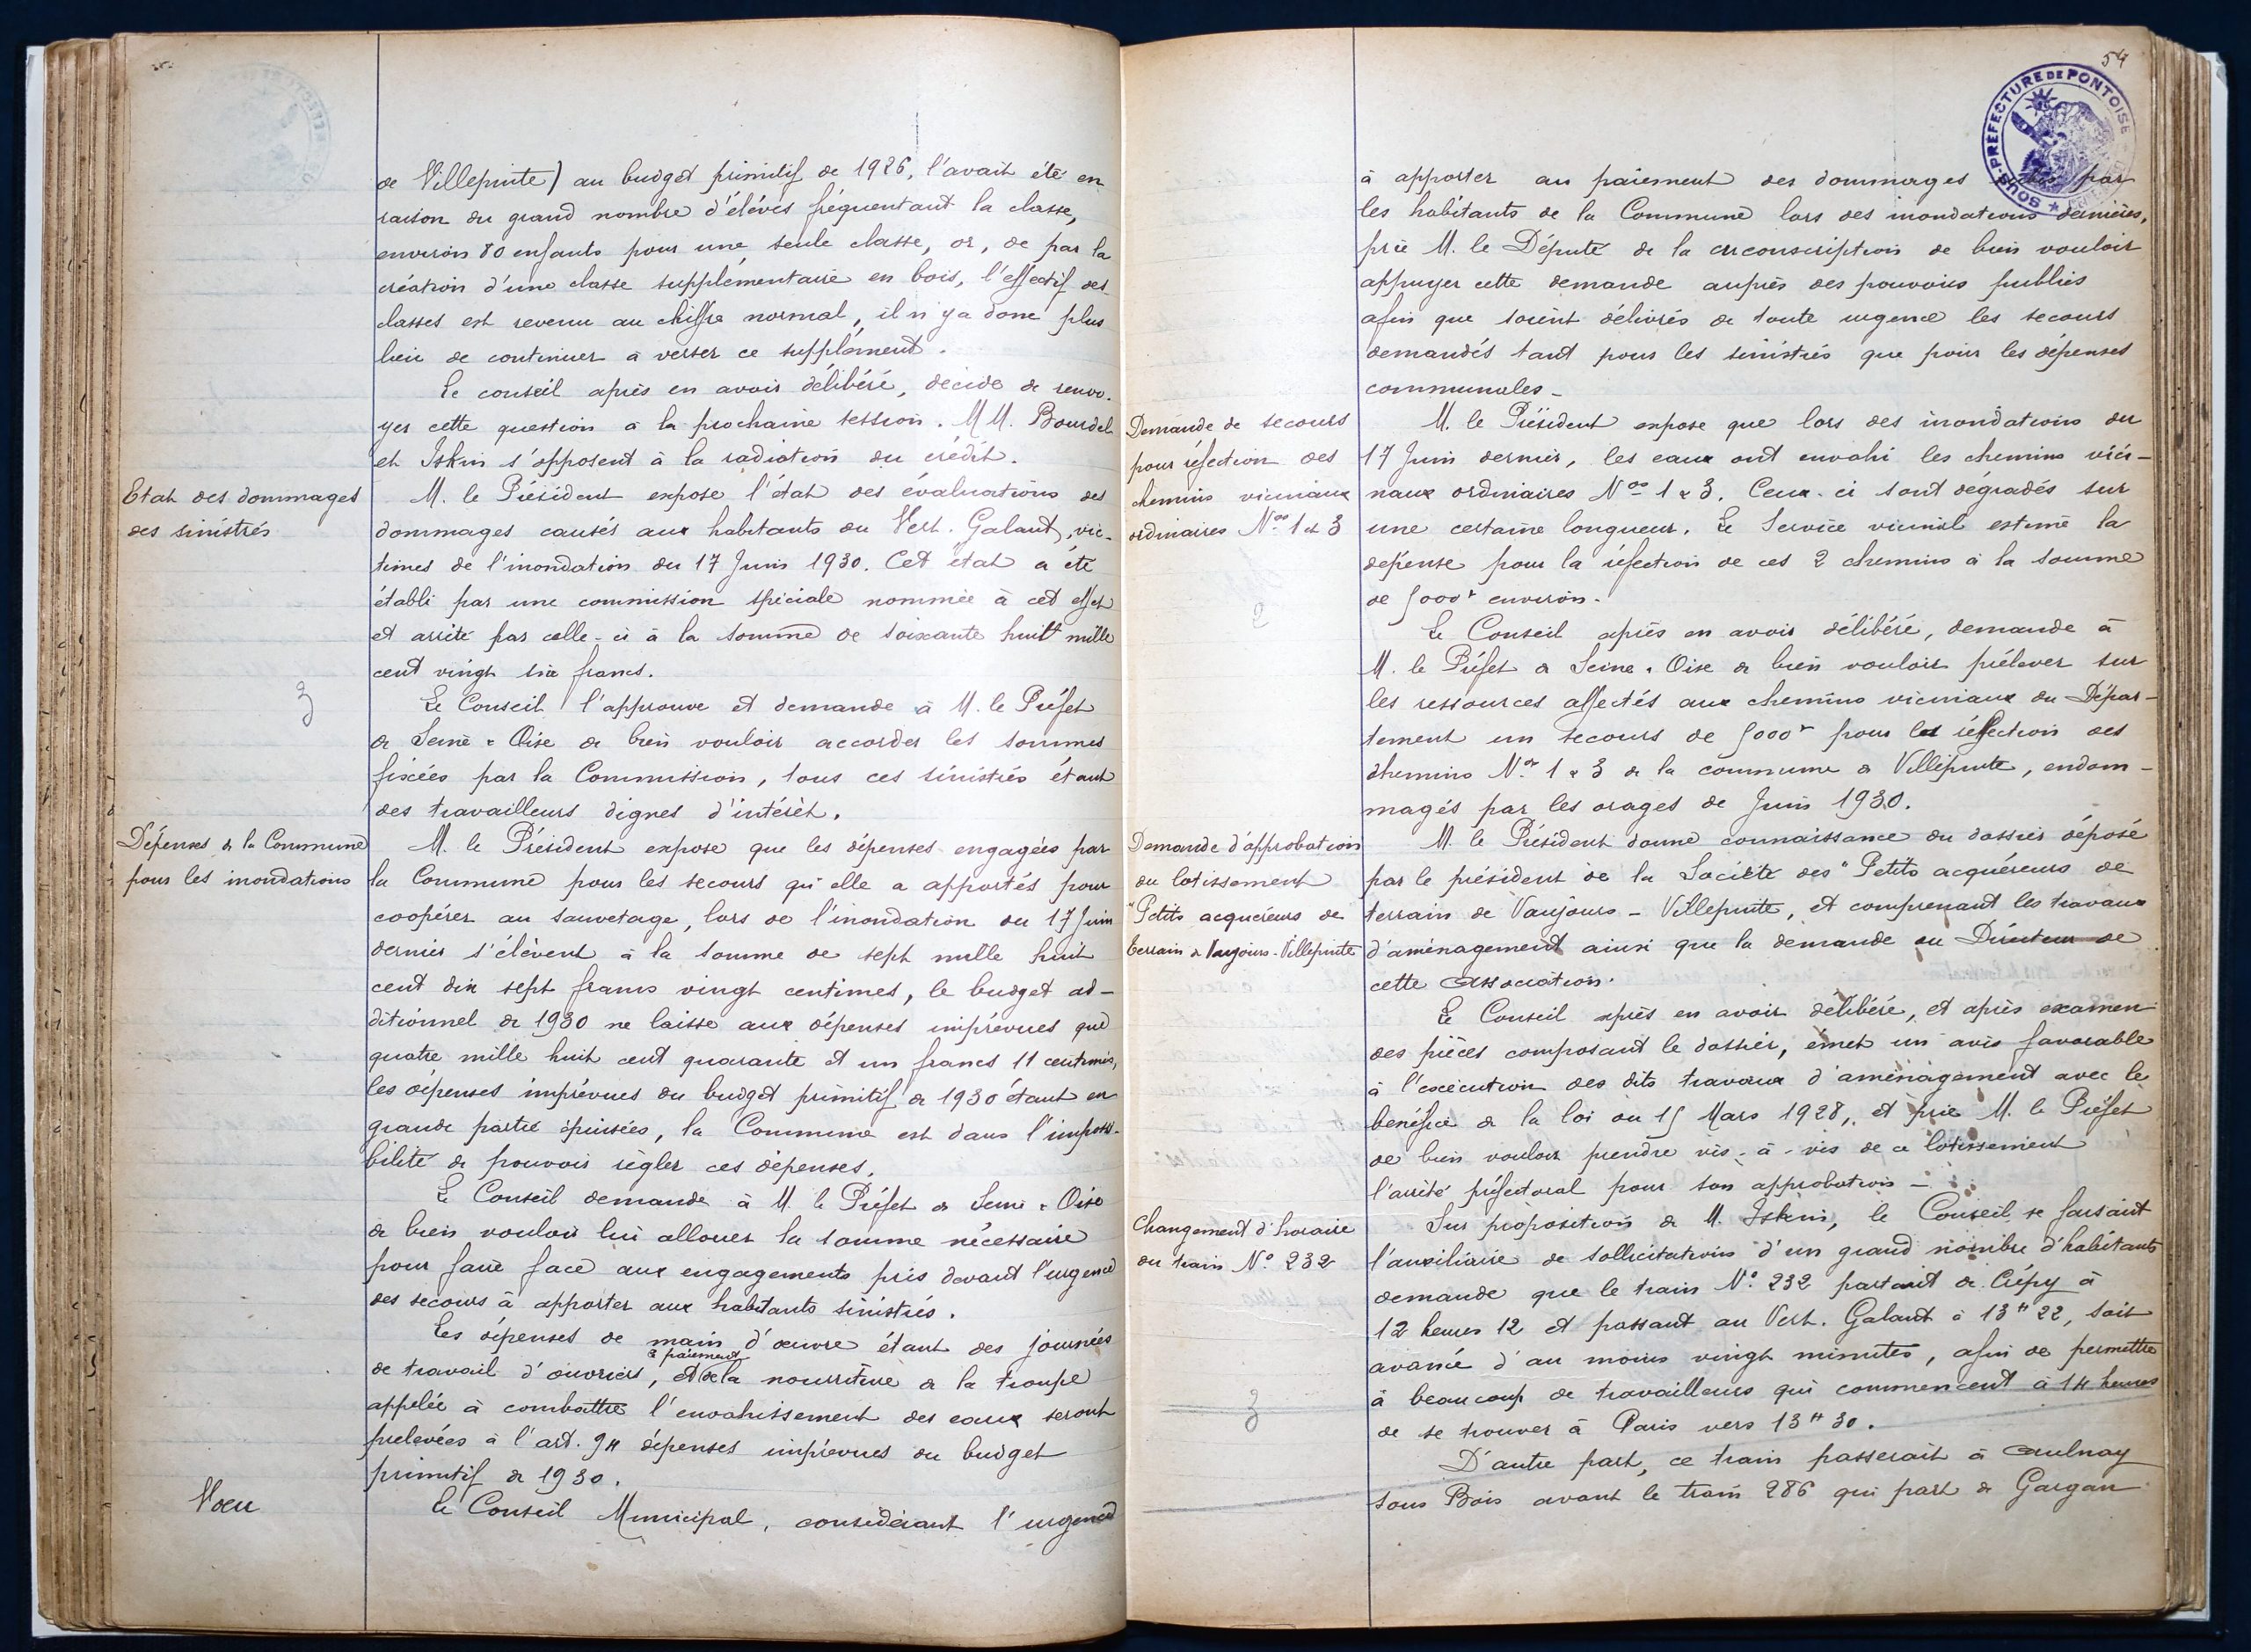 de Villepinte) au budget primitif de 1926, l'avait été en
raison du grand nombre d'élèves fréquentant la classe,
environ 80 enfants pour une seule classe, or, de par la
création d'une classe supplémentaire en bois, l'effectif des
classes est revenu au chiffre normal, il n'y a donc plus
lieu de continuer à verser ce supplément.
Le conseil après en avoir délibéré, décide de renvo-
yer cette question à la prochaine session. M M. Bourdel
et Iskin s'opposent à la radiation du crédit.
Etat des dommages
des sinistrés
M. le Président expose l'état des évaluations des
dommages causés aux habitants du Vert-Galant, vic-
times de l'inondation du 17 Juin 1930. Cet état a été
établi par une commission spéciale nommée à cet effet
et arrêté par celle-ci à la somme de soixante huit mille
cent vingt six francs.
3
Le Conseil l'approuve et demande à M. le Préfet
de Seine & Oise de bien vouloir accorder les sommes
fixées par la Commission, tous ces sinistrés étant
des travailleurs dignes d'intérêt.
Dépenses de la Commune
pour les inondations
M. le Président expose que les dépenses engagées par
la Commune pour les secours qu'elle a apportés pour
coopérer au sauvetage, lors de l'inondation du 17 Juin
dernier s'élèvent à la somme de sept mille huit
cent dix sept francs vingt centimes, le budget ad-
ditionnel de 1930 ne laisse aux dépenses imprévues que
quatre mille huit cent quarante et un francs 11 centimes,
les dépenses imprévues du budget primitif de 1930 étant en
grande partie épuisées, la Commune est dans l'impossi-
bilité de pouvoir règler ces dépenses.
Le Conseil demande à M. le Préfet de Seine & Oise
de bien vouloir lui allouer la somme nécessaire
pour faire face aux engagements pris devant l'urgence
des secours à apporter aux habitants sinistrés.
Les dépenses de main d'œuvre étant des journées
de travail d'ouvriers, et le paiement de la nourriture de la troupe
appelée à combattre l'envahissement des eaux seront
prelevées à l'art. 94 dépenses imprévues du budget
primitif de 1930.
Voeu
Le Conseil Municipal, considérant l'urgence
54
SOUS-PREFECTURE DE PONTOISE
à apporter au paiement des dommages par
les habitants de la Commune lors des inondations dernières,
prie M. le Député de la circonscription de bien vouloir
appuyer cette demande auprès des pouvoirs publics
afin que soient délivrés de toute urgence les secours
demandés tant pour les sinistrés que pour les dépenses
communales -
Demande de secours
pour réfection des
chemins vicinaux
ordinaires Nos 1 et 3
M. le Président expose que lors des inondations du
17 Juin dernier, les eaux ont envahi les chemins vici-
naux ordinaires Nos 1 & 3. Ceux-ci sont dégradés sur
une certaine longueur. Le Service vicinal estime la
dépense pour la réfection de ces 2 chemins à la somme
de 5000 f environ.
2
Le Conseil après en avoir délibéré, demande à
M. le Préfet de Seine & Oise de bien vouloir prélever sur
les ressources affectés aux chemins vicinaux du Dépar-
tement un secours de 5000 f pour la réfection des
chemins Nos 1 & 3 de la commune de Villepinte, endom-
magés par les orages de Juin 1930.
Demande d'approbation
du lotissement
"Petits acquéreurs de
terrain de Vaujours-Villepinte
M. le Président donne connaissance du dossier déposé
par le président de la Société des "Petits acquéreurs de
terrain de Vaujours - Villepinte, et comprenant les travaux
d'aménagement ainsi que la demande du Directeur de
cette association.
Le Conseil après en avoir délibéré, et après examen
des pièces composant le dossier, émet un avis favorable
à l'exécution des dits travaux d'aménagement avec le
bénéfice de la loi du 15 Mars 1928, et prie M. le Préfet
de bien vouloir prendre vis-à-vis de ce lotissement
l'arrêté préfectoral pour son approbation -
Changement d'horaire
du train N° 232
Sur proposition de M. Iskin, le Conseil se faisant
l'auxiliaire de sollicitations d'un grand nombre d'habitants
demande que le train N° 232 partant de Crépy à
12 heures 12 et passant au Vert-Galant à 13 H 22, soit
avancé d'au moins vingt minutes, afin de permettre
à beaucoup de travailleurs qui commencent à 14 heures
3
de se trouver à Paris vers 13 H 30.
D'autre part, ce train passerait à Aulnay
sous Bois avant le train 286 qui part de Gargan